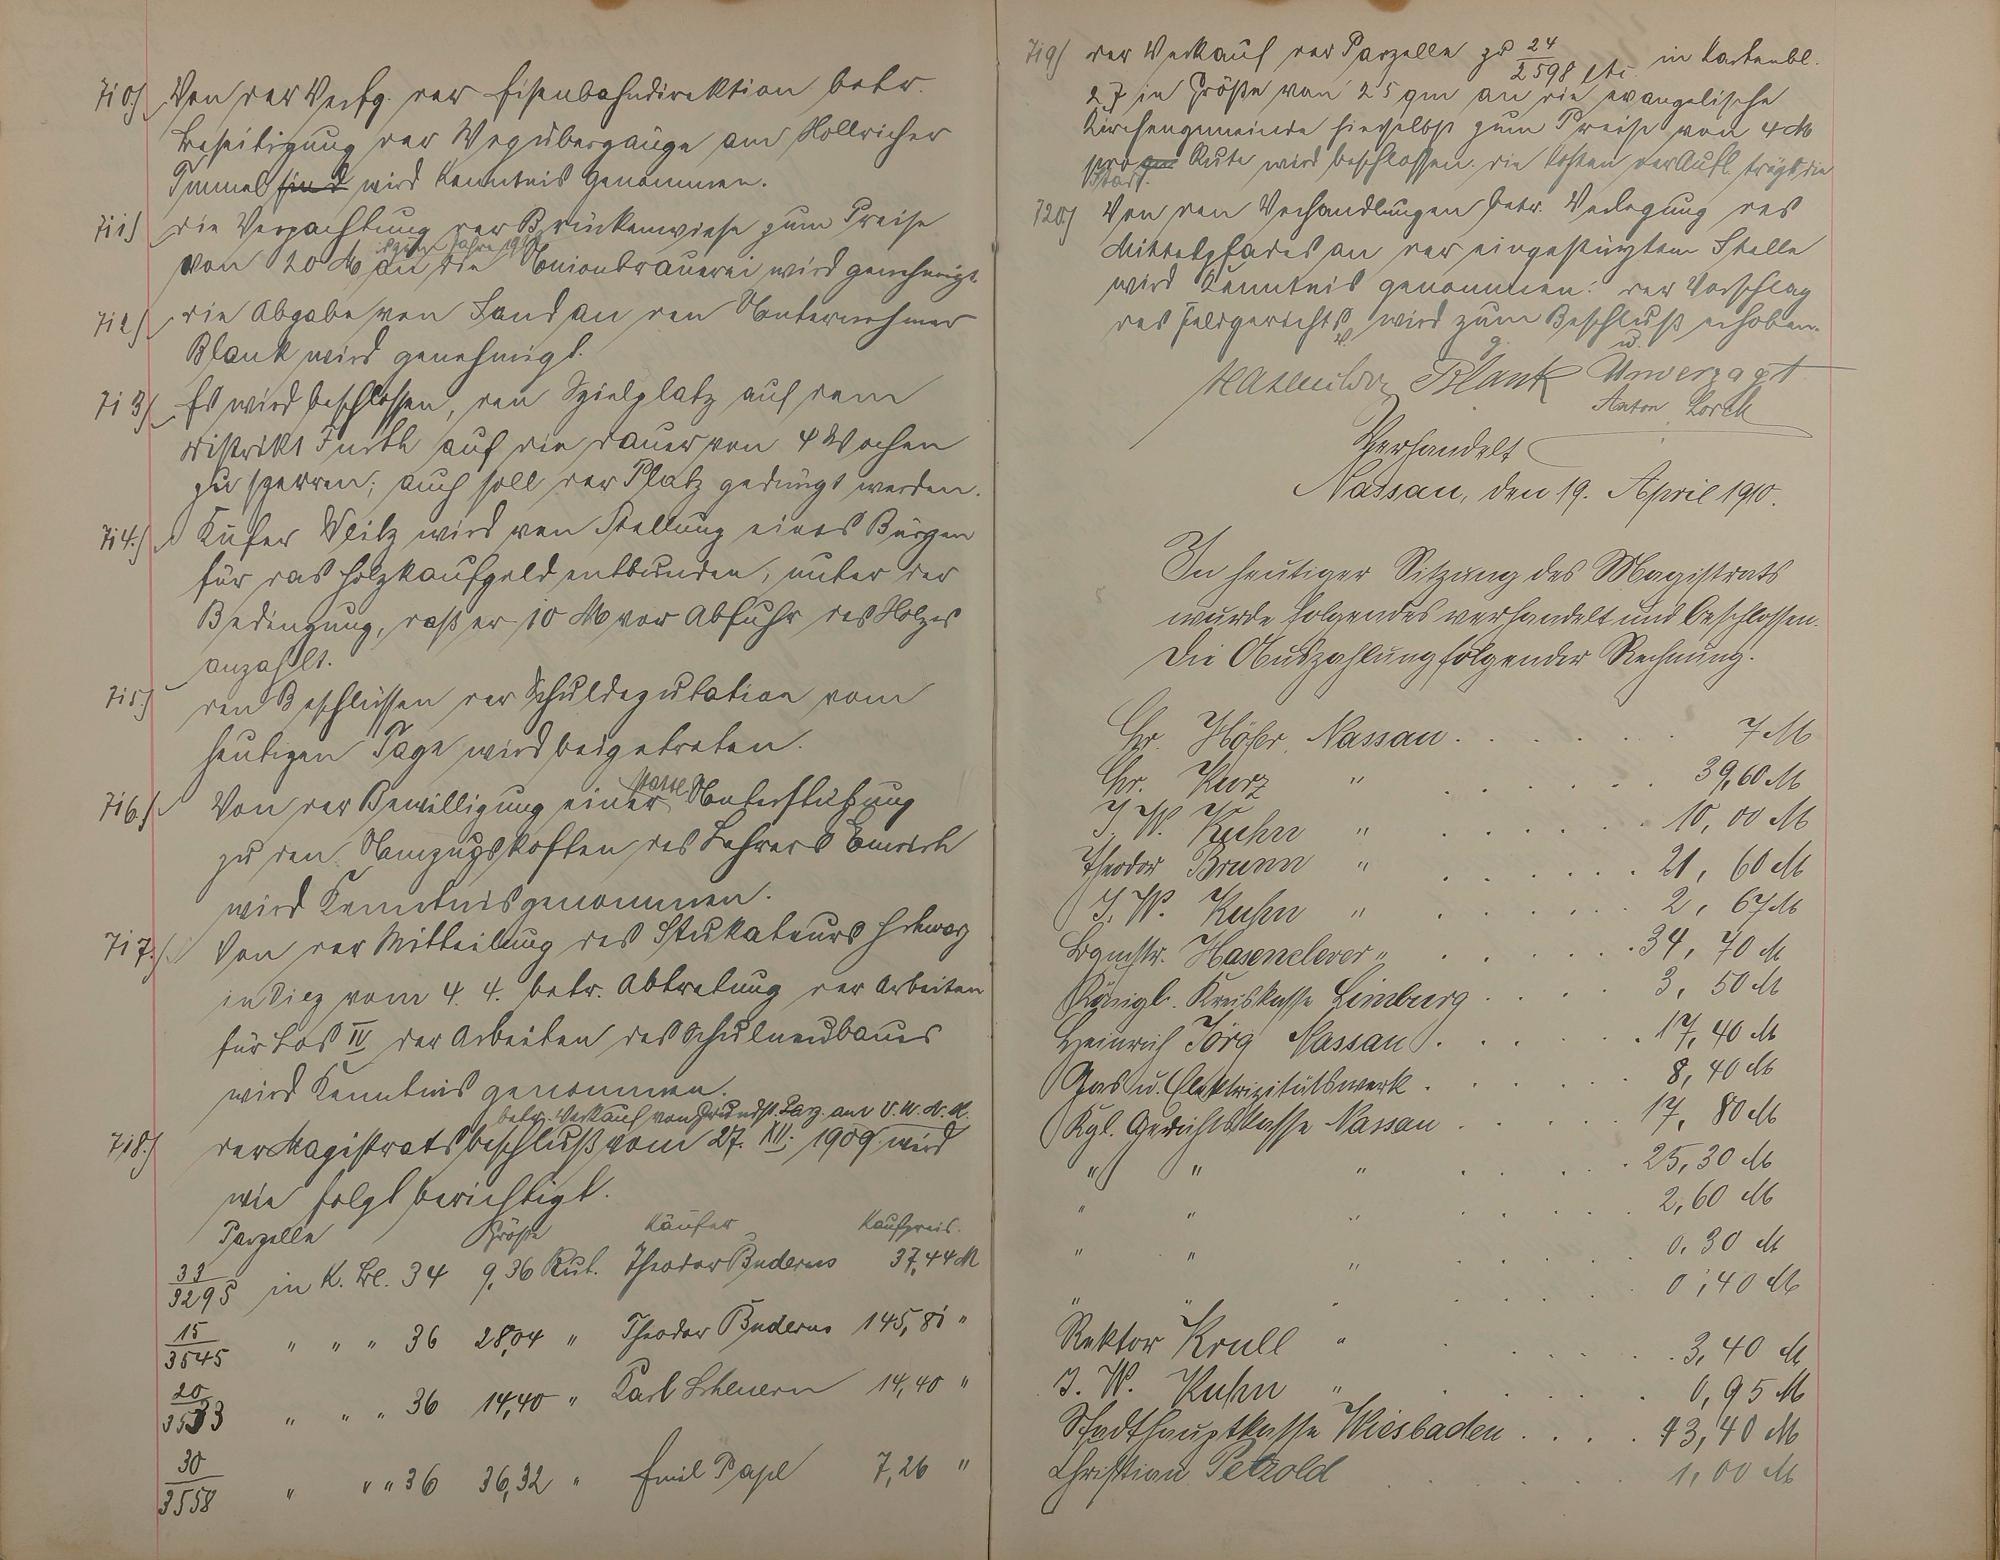 710) Von der Verfg. der Eisenbahndirektion betr.
Beseitigung der Wegübergänge am Hollricher
Tunnel sind wird Kenntnis genommen.
711) die Verpachtung der Brückenwiese zum Preise
von 20 M an die Unionbrauerei wird genehmigt.
712) die Abgabe von Sand an den Unternehmer
Blank wird genehmigt.
713) Es wird beschlossen, den Spielplatz auf dem
distrikt auf die dauer von 4 Wochen
zu sperren; auch soll der Platz gedüngt werden.
714.) Küfer wird von Stellung eines Bürgen
für das Holzkaufgeld entbunden, unter der
Bedingung, daß er 10 M vor Abfuhr des Holzes
anzahlt.
715.) den Beschlüssen der Schuldeputation vom
heutigen Tage wird beigetreten.
716.) Von der Bewilligung einer Unterstützung
zu den Umzugskosten des Lehrers Emrich
wird Kenntnis genommen.
717.) Von der Mitteilung des Stukateurs Schwarz
in Diez vom 4. 4. betr. Abtretung der Arbeiten
für Los IV der Arbeiten des Schulneubaues
wird Kenntnis genommen.
betr. Verkauf von Grundst. Parz. am
718.) der Magistratsbeschluß vom 27. XII. 1909 wird
wie folgt berichtigt.
Parzelle Größe Käufer Kaufpreis.
33/3295 in K. Bl. 34 9,36 Rut. Theodor Buderus 37,44 M
15/3545 " " " 36 28,04 " Theodor Buderus 145,81 "
20/3533 " " " 36 14,40 " Karl Scheuern 14,40 "
30/3558 " " " 36 36,32 " Emil Pape 7,26 "
719) der Verkauf der Parzelle zu 24/2598 etc. in Kartenbl.
27 in Größe von 25 qm an die evangelische
Kirchengemeinde hieselbst zum Preise von 4 M
pro qm Rute wird beschlossen. die Kosten der Aufl. trägt die
Stadt.
720) Von den Verhandlungen betr. Verlegung des
Mittelpfades an der eingestürzten Stelle
wird Kenntnis genommen: der Vorschlag
des Feldgerichts wird zum Beschluß erhoben.
v. g. u.
Hasenclever Blank Unverzagt
Anton Lorch
Verhandelt
Nassau, den 19. April 1910.
In heutiger Sitzung des Magistrats
wurde folgendes verhandelt und beschlossen.
Die Auszahlung folgender Rechnung.
Chr. Höfer, Nassau . . . . . . 7 M
Chr. Kurz " . . . . . . 39,60 M
J. W. Kuhn " . . . . . . 10,00 M
Theodor Brunn " . . . . . . 21,60 M
J. W. Kuhn " . . . . . . 2,67 M
Bgmstr. Hasenclever " . . . . . 34,70 M
Königl. Kreiskasse Limburg . . . . 3,50 M
Heinrich Jörg Nassau . . . . . . 17,40 M
Gas u. Elektrizitätswerk . . . . . . 8,40 M
Kgl. Gerichtskasse Nassau . . . . . 17,80 M
" " " . . . . . 25,30 M
" " " . . . . . 2,60 M
" " " . . . . 0,30 M
" " " . . . . 0,40 M
Rektor Krull " . . . . . 3,40 M
J. W. Kuhn " . . . . . 0,95 M
Stadthauptkasse Wiesbaden . . . . 43,40 M
Christian Petzold . . . . . 1,00 M